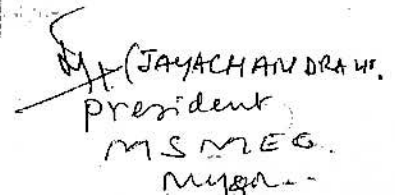 (JAYACHANDRA H.
president
MSMEG.